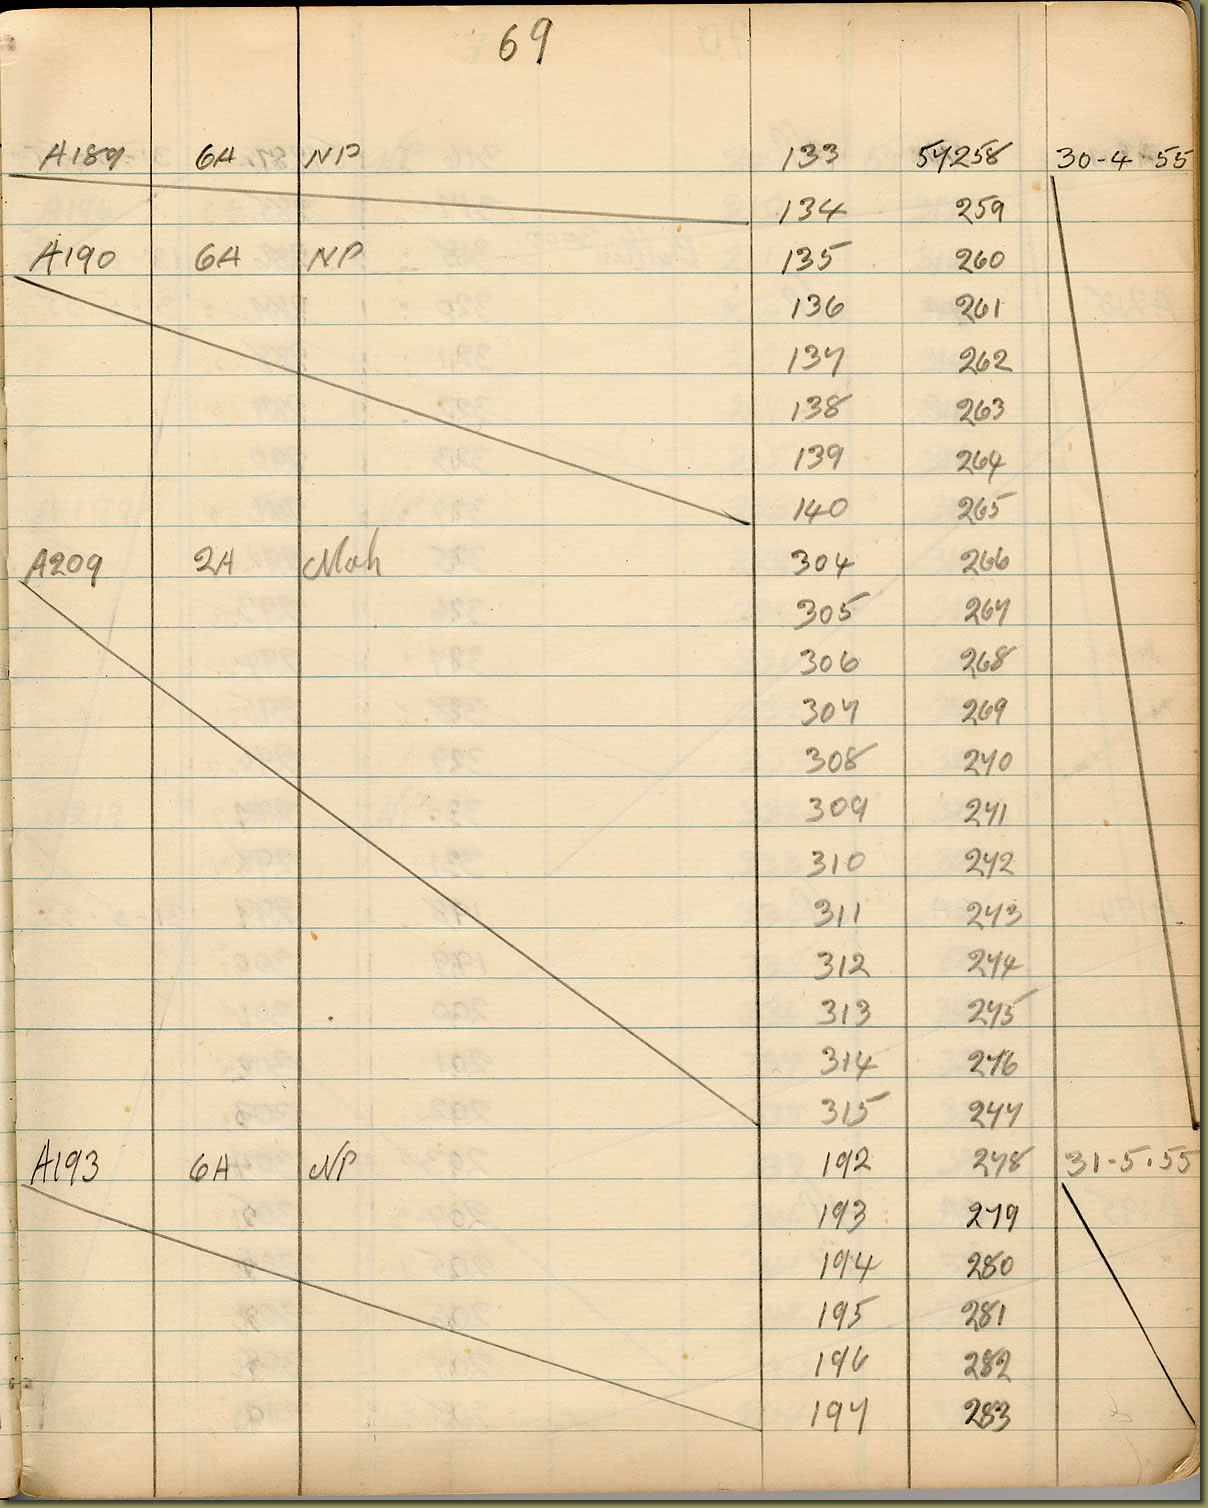 69
A189 6A NP 133 57258 30-4-55
134 259
A190 6A NP 135 260
136 261
137 262
138 263
139 264
140 265
A209 2A Mah 304 266
305 267
306 268
307 269
308 270
309 271
310 272
311 273
312 274
313 275
314 276
315 277
A193 6A NP 192 278 31-5.55
193 279
194 280
195 281
196 282
197 283